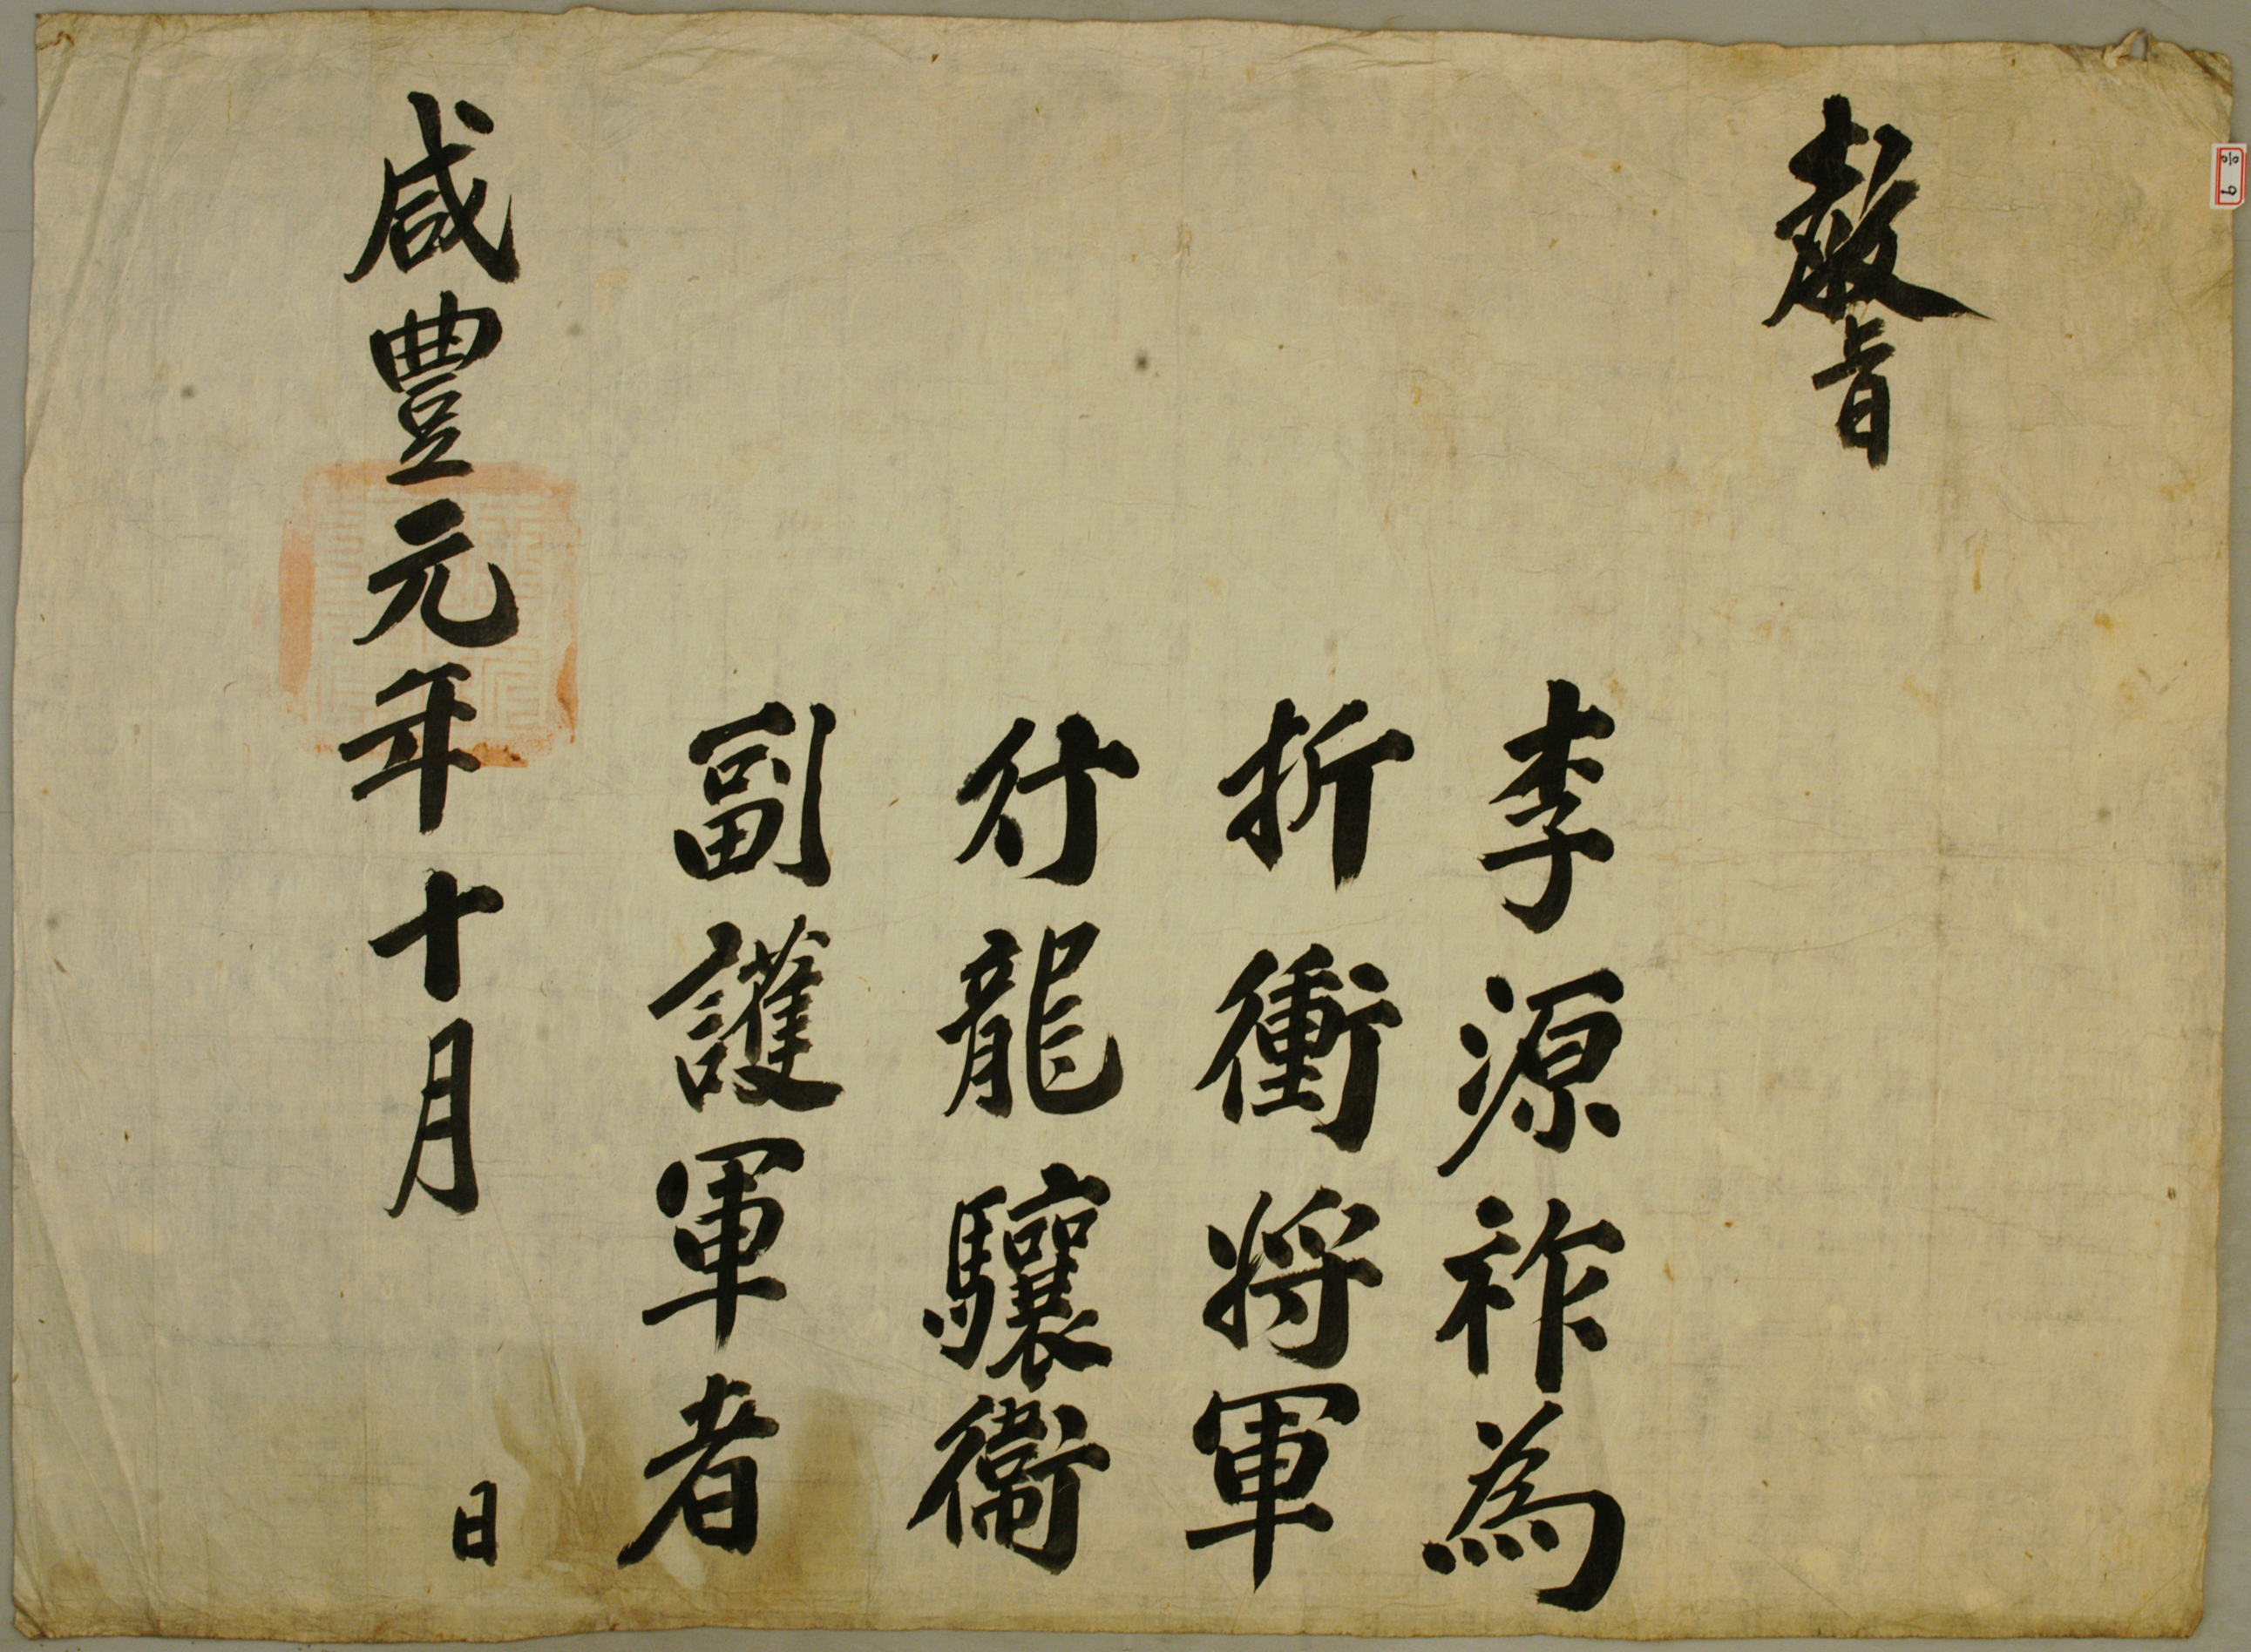 敎旨
李源祚為
折衝將軍
行龍驤衛
副護軍者
咸豊元年十月
日